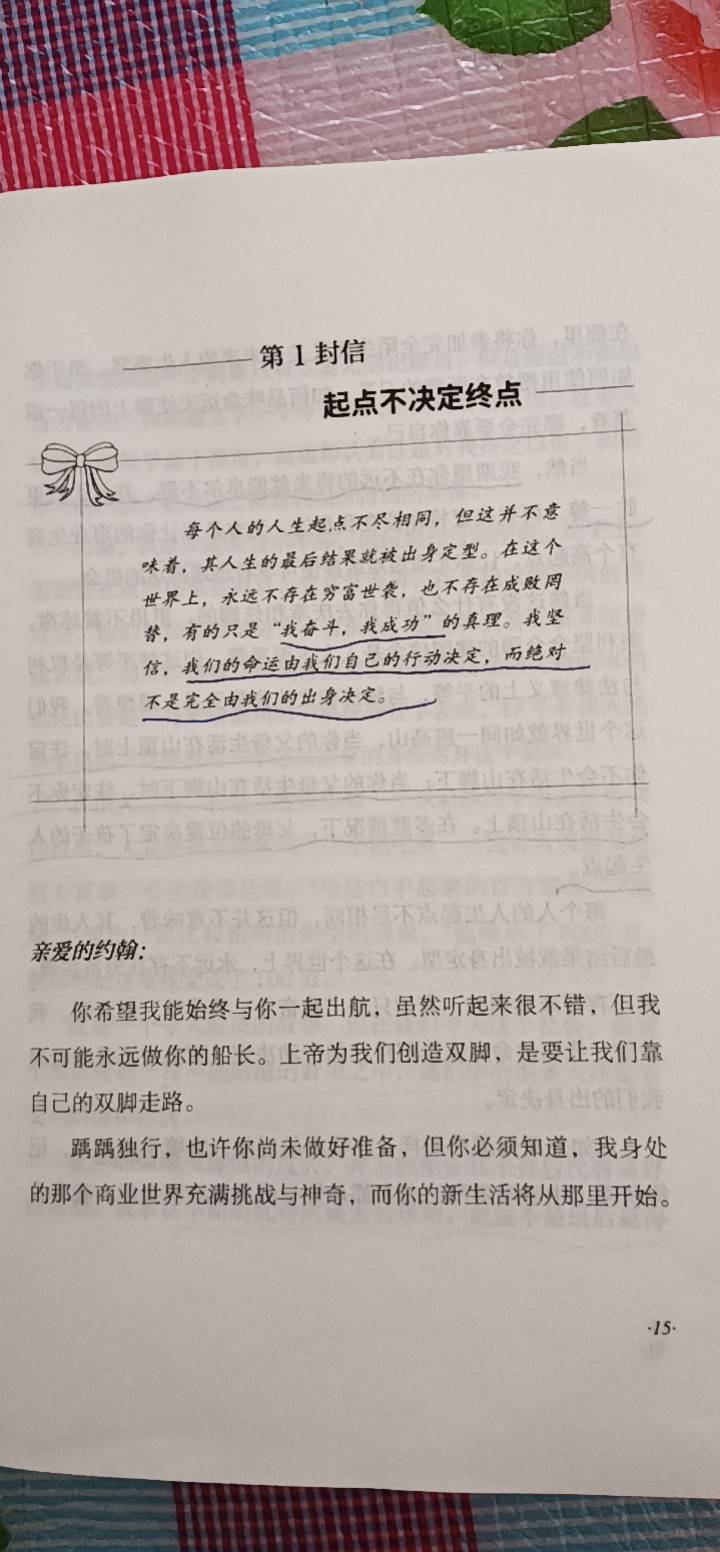 第1封信
起点不决定终点
每个人的人生起点不尽相同，但这并不意
味着，其人生的最后结果就被出身定型。在这个
世界上，永远不存在穷富世袭，也不存在成败罔
替，有的只是“我奋斗，我成功”的真理。我坚
信，我们的命运由我们自己的行动决定，而绝对
不是完全由我们的出身决定。
亲爱的约翰：
你希望我能始终与你一起出航，虽然听起来很不错，但我
不可能永远做你的船长。上帝为我们创造双脚，是要让我们靠
自己的双脚走路。
踽踽独行，也许你尚未做好准备，但你必须知道，我身处
的那个商业世界充满挑战与神奇，而你的新生活将从那里开始。
·15·